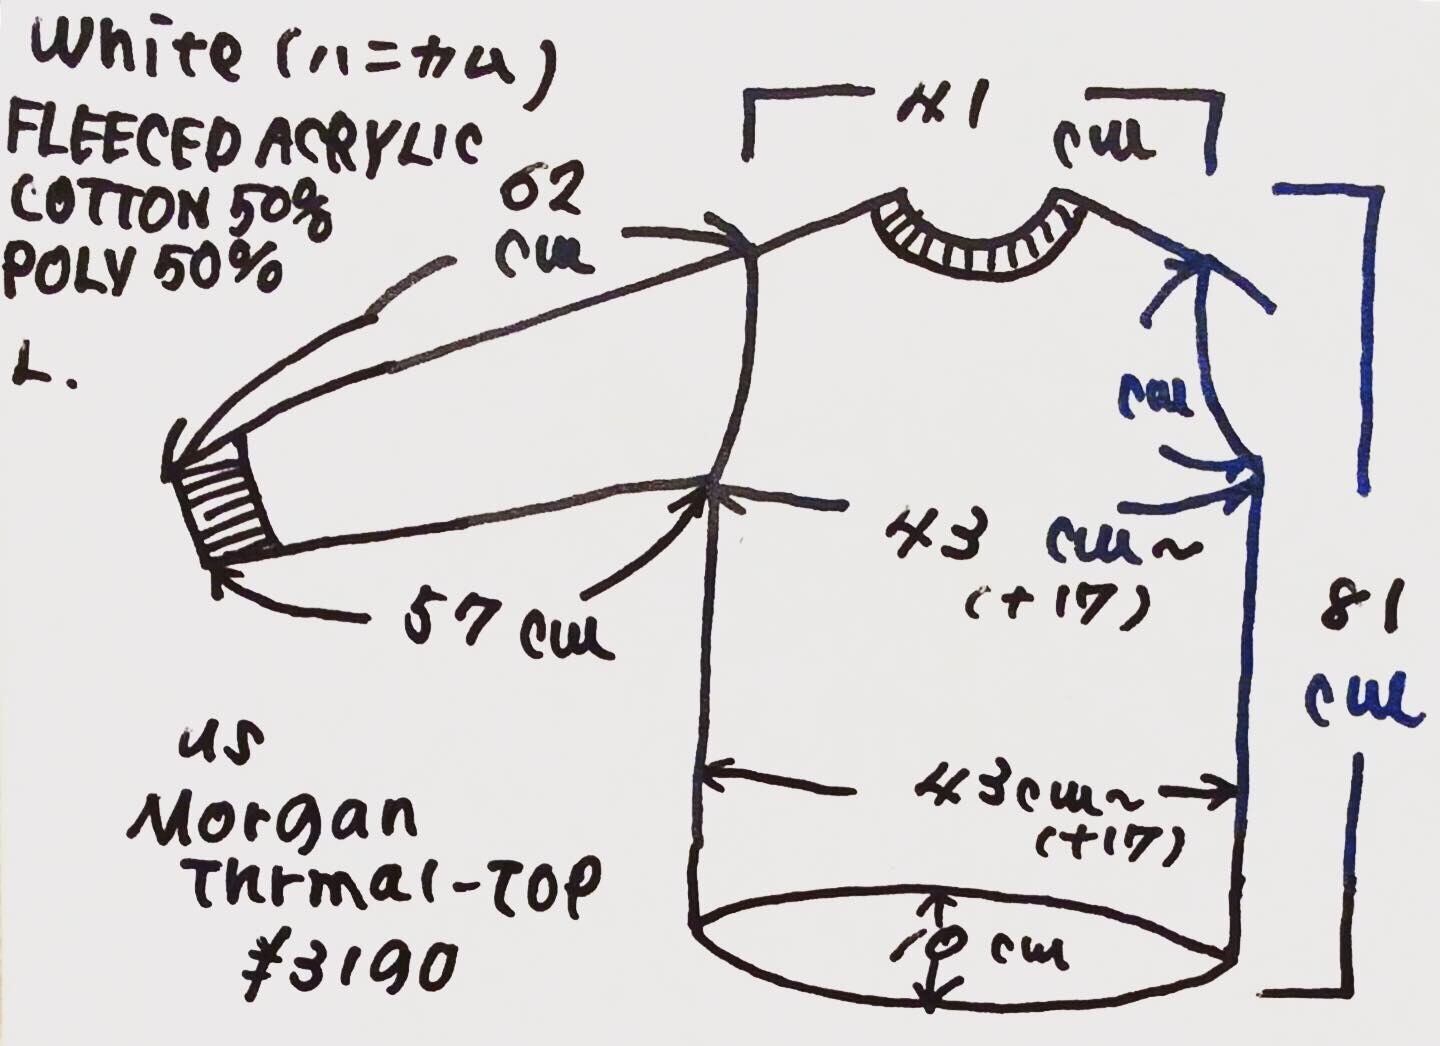 White (ハニカム)
FLEECED ACRYLIC
COTTON 50%
POLY 50%
L.
62
cm
41
cm
cm
43 cm~
(+17)
57 cm
81
cm
43cm~
(+17)
10 cm
US
Morgan
Thrmal-TOP
¥3190